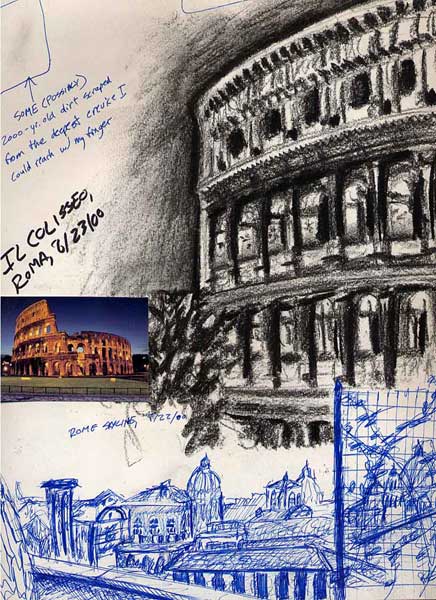 SOME (POSSIBLY)
2000-yr. old dirt scraped
from the deepest crevice I
could reach w/ my finger
IL COLISSEO,
ROMA, 8/23/00
ROME SKYLINE,